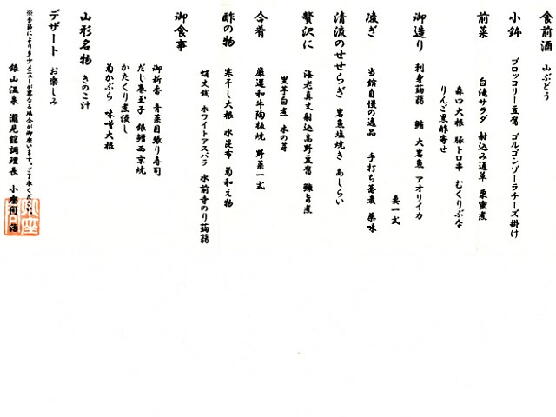 食前酒 山ぶどう
小鉢 ブロッコリー豆腐 ゴルゴンゾーラチーズ掛け
前菜 白滝サラダ 射込み通草 栗蜜煮
森口大根 豚トロ串 むくりぶな
りんご黒酢寄せ
御造り 刺身蒟蒻 鮪 大岩魚 アオリイカ
妻一式
凌ぎ 当館自慢の逸品 手打ち蕎麦 薬味
清流のせせらぎ 岩魚塩焼き あしらい
贅沢に 海老真丈射込高野豆腐
里芋白煮 木の芽
合肴 蔵王和牛陶板焼 野菜一式
酢の物 寒干し大根 水昆布 菊和え物
ホワイトアスパラ 水前寺のり蒟蒻
御食事
御新香 青菜目張り寿司
だし巻玉子 銀鱈西京焼
かたくり煮浸し
菊かぶら 味噌大根
山形名物 きのこ汁
デザート お楽しみ
※季節によりまりメニューが異なる場合が御座います。ご了承ください。
銀山温泉 瀧見館調理長